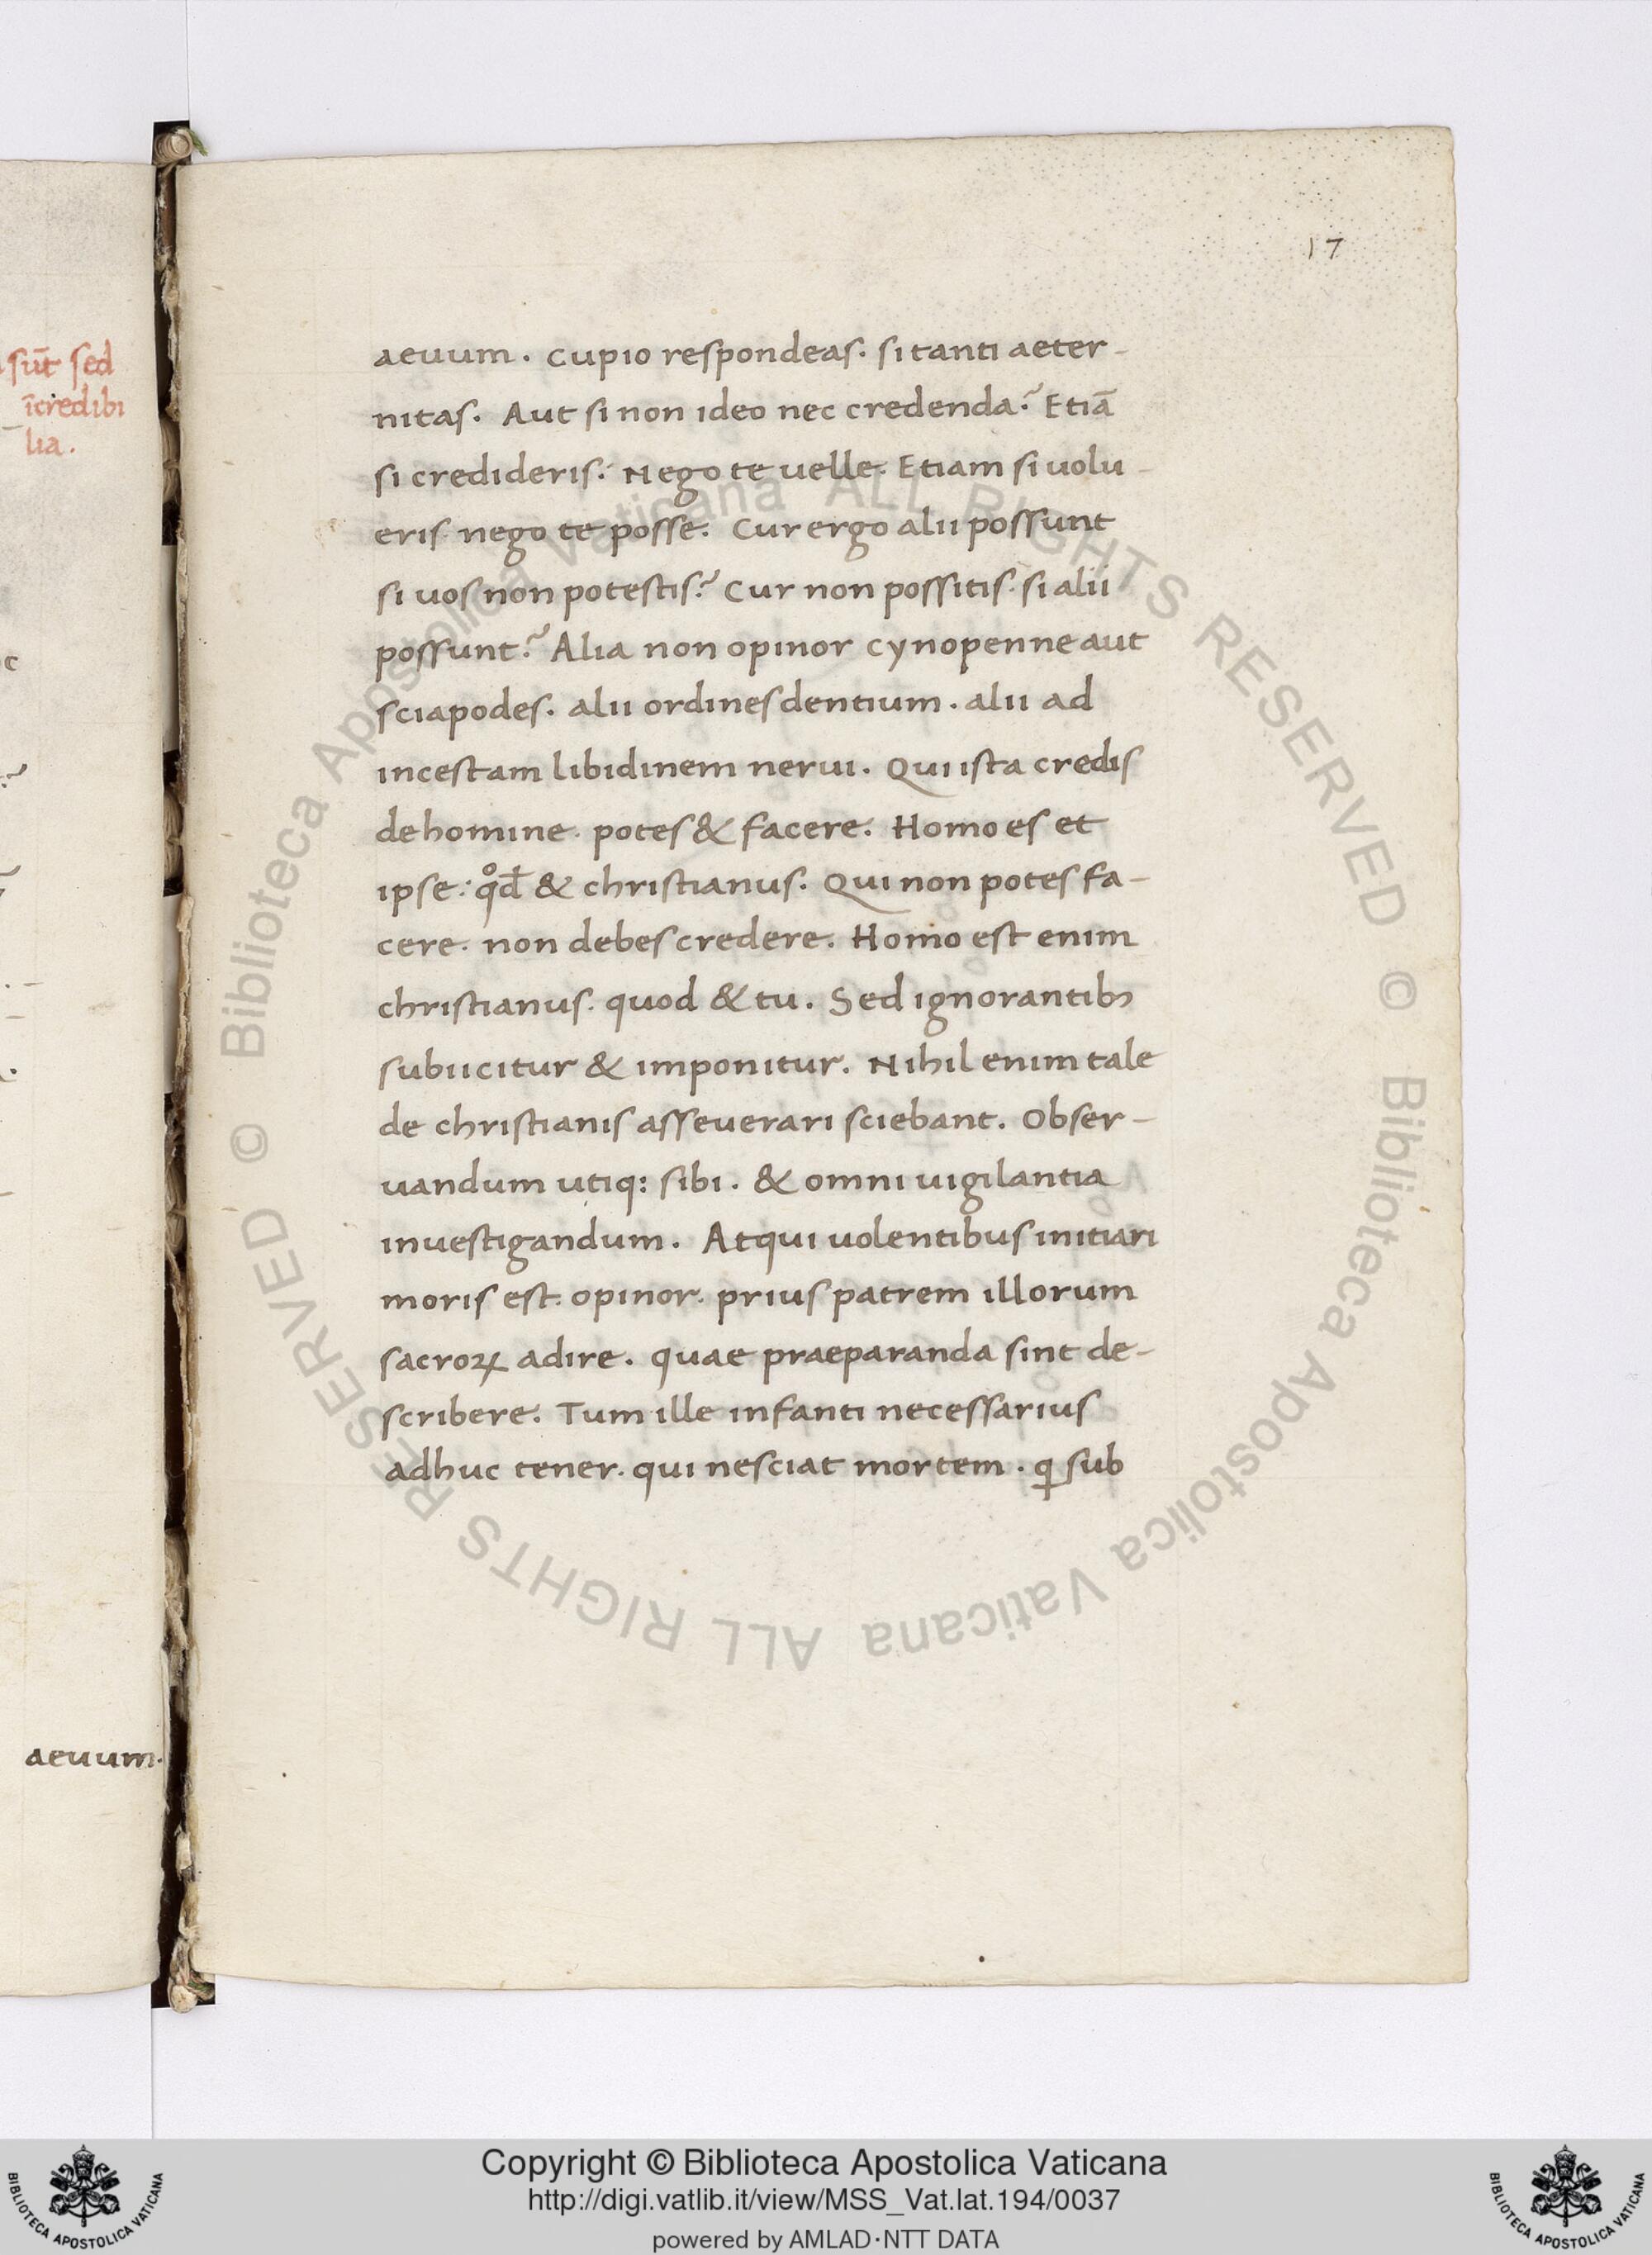 sūt sed
īcredibi
lia.
aeuum.
17
aeuum. Cupio respondeas. si tanti aeter-
nitas. Aut si non ideo nec credenda? Etiā
si credideris: Nego te uelle. Etiam si uolu-
eris nego te posse. Cur ergo alii possunt
si uos non potestis? Cur non possitis. si alii
possunt? Alia non opinor cynopenne aut
sciapodes. alii ordines dentium. alii ad
incestam libidinem nerui. Qui ista credis
de homine. potes & facere. Homo es et
ipse: qd̄ & christianus. Qui non potes fa-
cere. non debes credere. Homo est enim
christianus. quod & tu. Sed ignorantibꝫ
subiicitur & imponitur. Nihil enim tale
de christianis asseuerari sciebant. Obser-
uandum utiq: sibi. & omni uigilantia
inuestigandum. Atqui uolentibus initiari
moris est. opinor. prius patrem illorum
sacroꝝ adire. quae praeparanda sint de-
scribere. Tum ille infanti necessarius
adhuc tener. qui nesciat mortem. ꝗ sub
© Biblioteca Apostolica Vaticana ALL RIGHTS RESERVED © Biblioteca Apostolica Vaticana ALL RIGHTS RESERVED
BIBLIOTECA APOSTOLICA VATICANA
Copyright © Biblioteca Apostolica Vaticana
http://digi.vatlib.it/view/MSS_Vat.lat.194/0037
powered by AMLAD·NTT DATA
BIBLIOTECA APOSTOLICA VATICANA